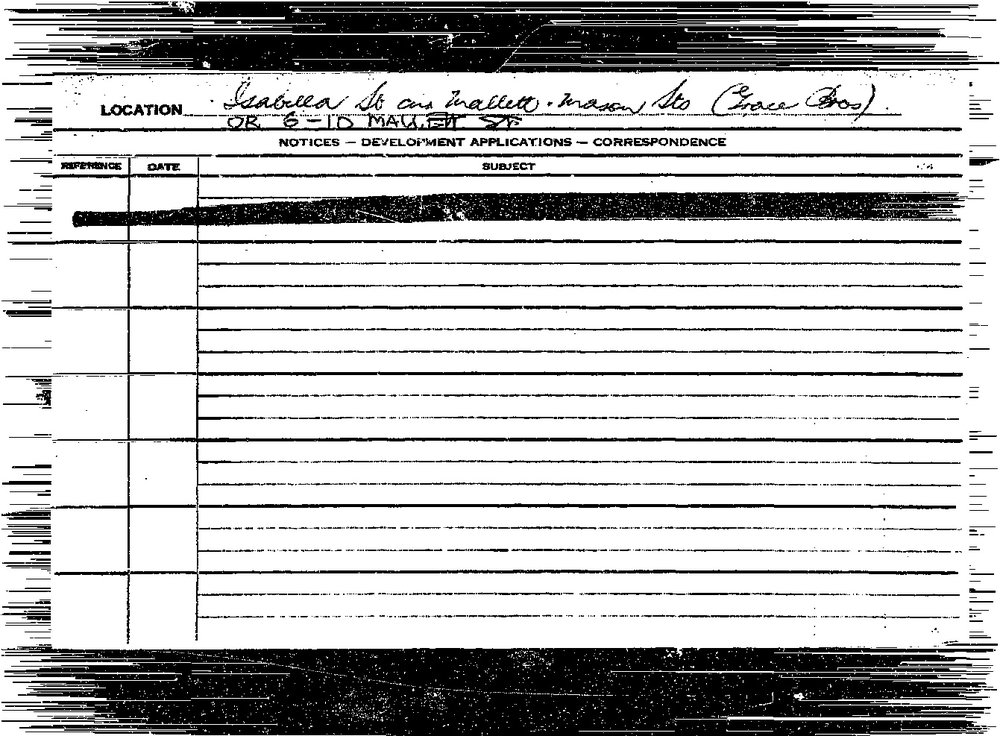 LOCATION Isabella St cnr Mallett . Mason Sts (Grace Bros).
OR 6-10 MALLETT ST
NOTICES — DEVELOPMENT APPLICATIONS — CORRESPONDENCE
REFERENCE DATE SUBJECT